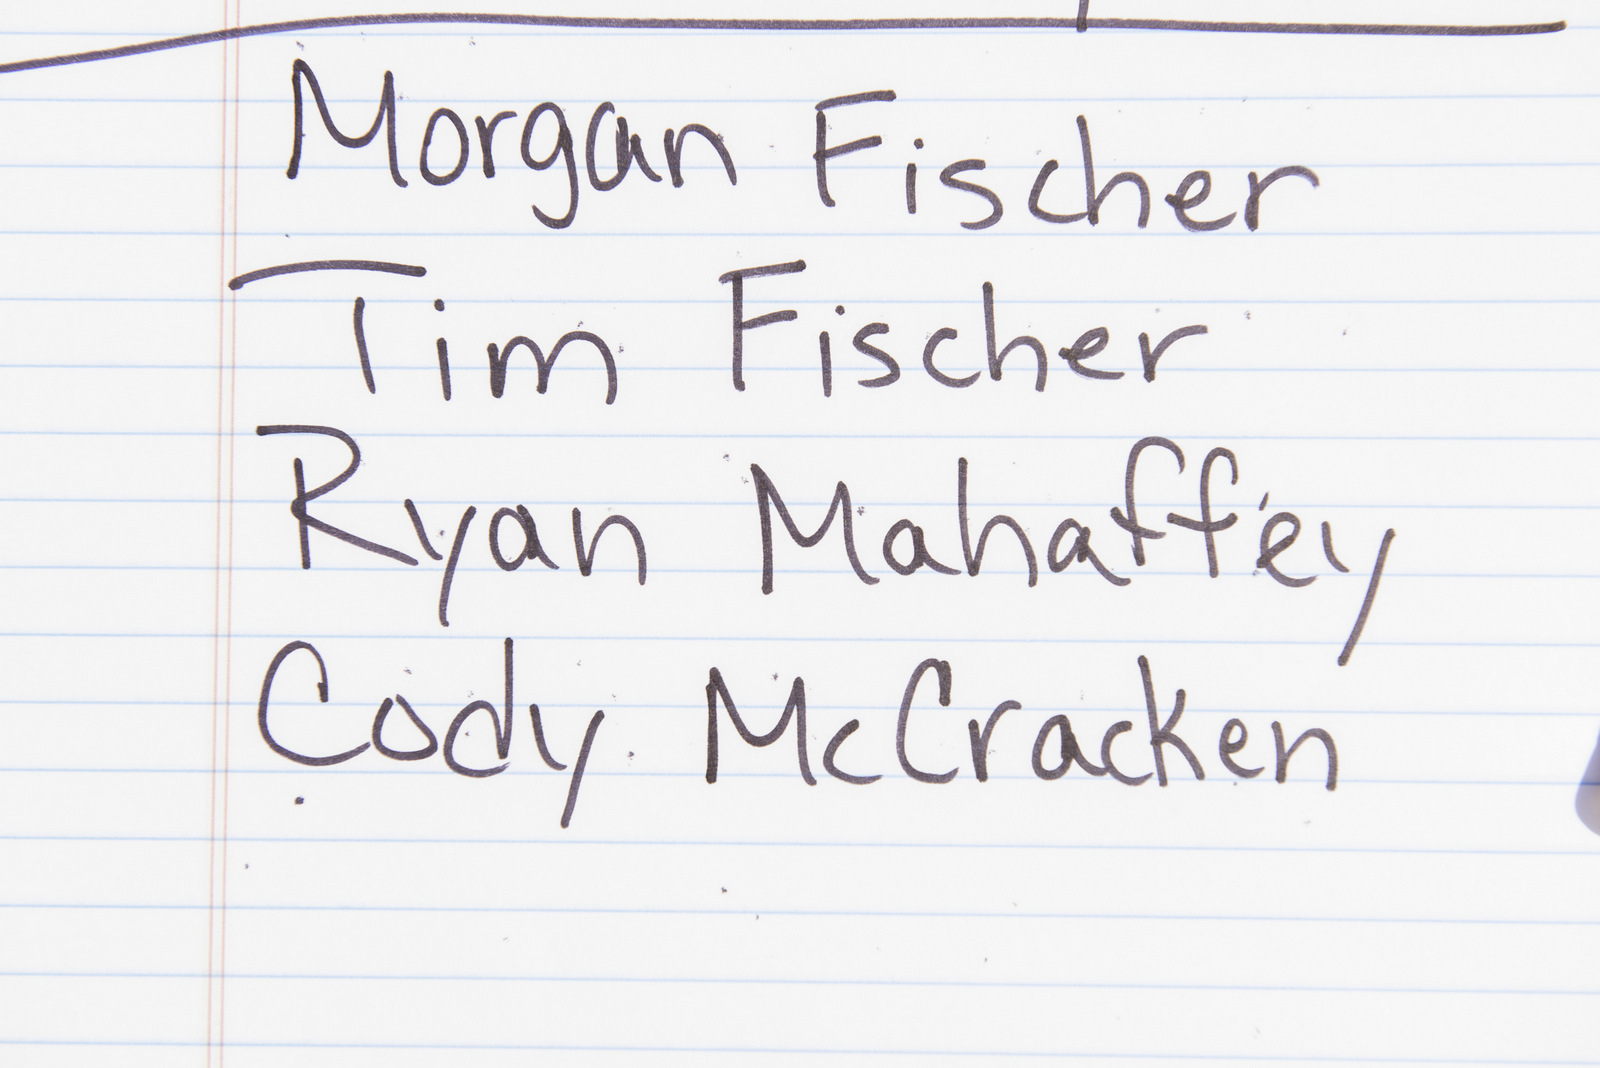 Morgan Fischer
Tim Fischer
Ryan Mahaffey
Cody McCracken